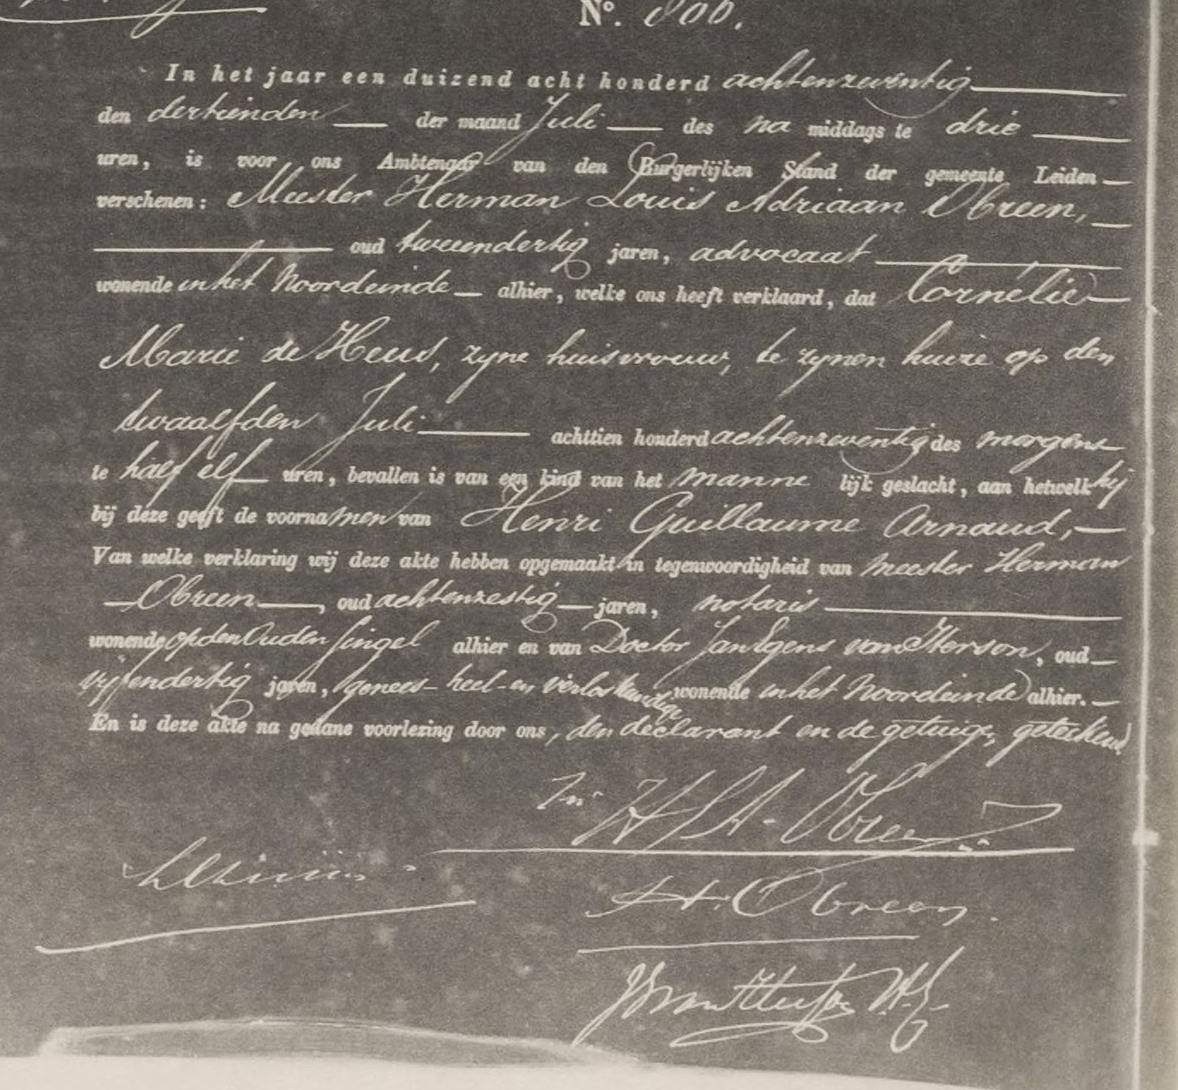 Nº. 800.
In het jaar een duizend acht honderd achtenzeventig
den dertienden der maand Juli des na middags te drie
uren, is voor ons Ambtenaar van den Burgerlijken Stand der gemeente Leiden
verschenen: Meester Herman Louis Adriaan Obreen,
oud tweeendertig jaren, advocaat
wonende in het Noordeinde alhier, welke ons heeft verklaard, dat Cornélie
Marie de Heus, zyne huisvrouw, te zynen huize op den
twaalfden Juli achttien honderd achtenzeventig des morgens
te half elf uren, bevallen is van een kind van het manne lijk geslacht, aan hetwelk hij
bij deze geeft de voornamen van Henri Guillaume Arnaud,
Van welke verklaring wij deze akte hebben opgemaakt in tegenwoordigheid van meester Herman
Obreen, oud achtenzestig jaren, notaris
wonende op den Ouden Singel alhier en van Doctor Jan Egens van Iterson, oud
vijfendertig jaren, genees- heel- en verloskundige wonende in het Noordeinde alhier.
En is deze akte na gedane voorlezing door ons, den declarant en de getuigen, geteekend.
Mr H L A Obreen
H. Obreen